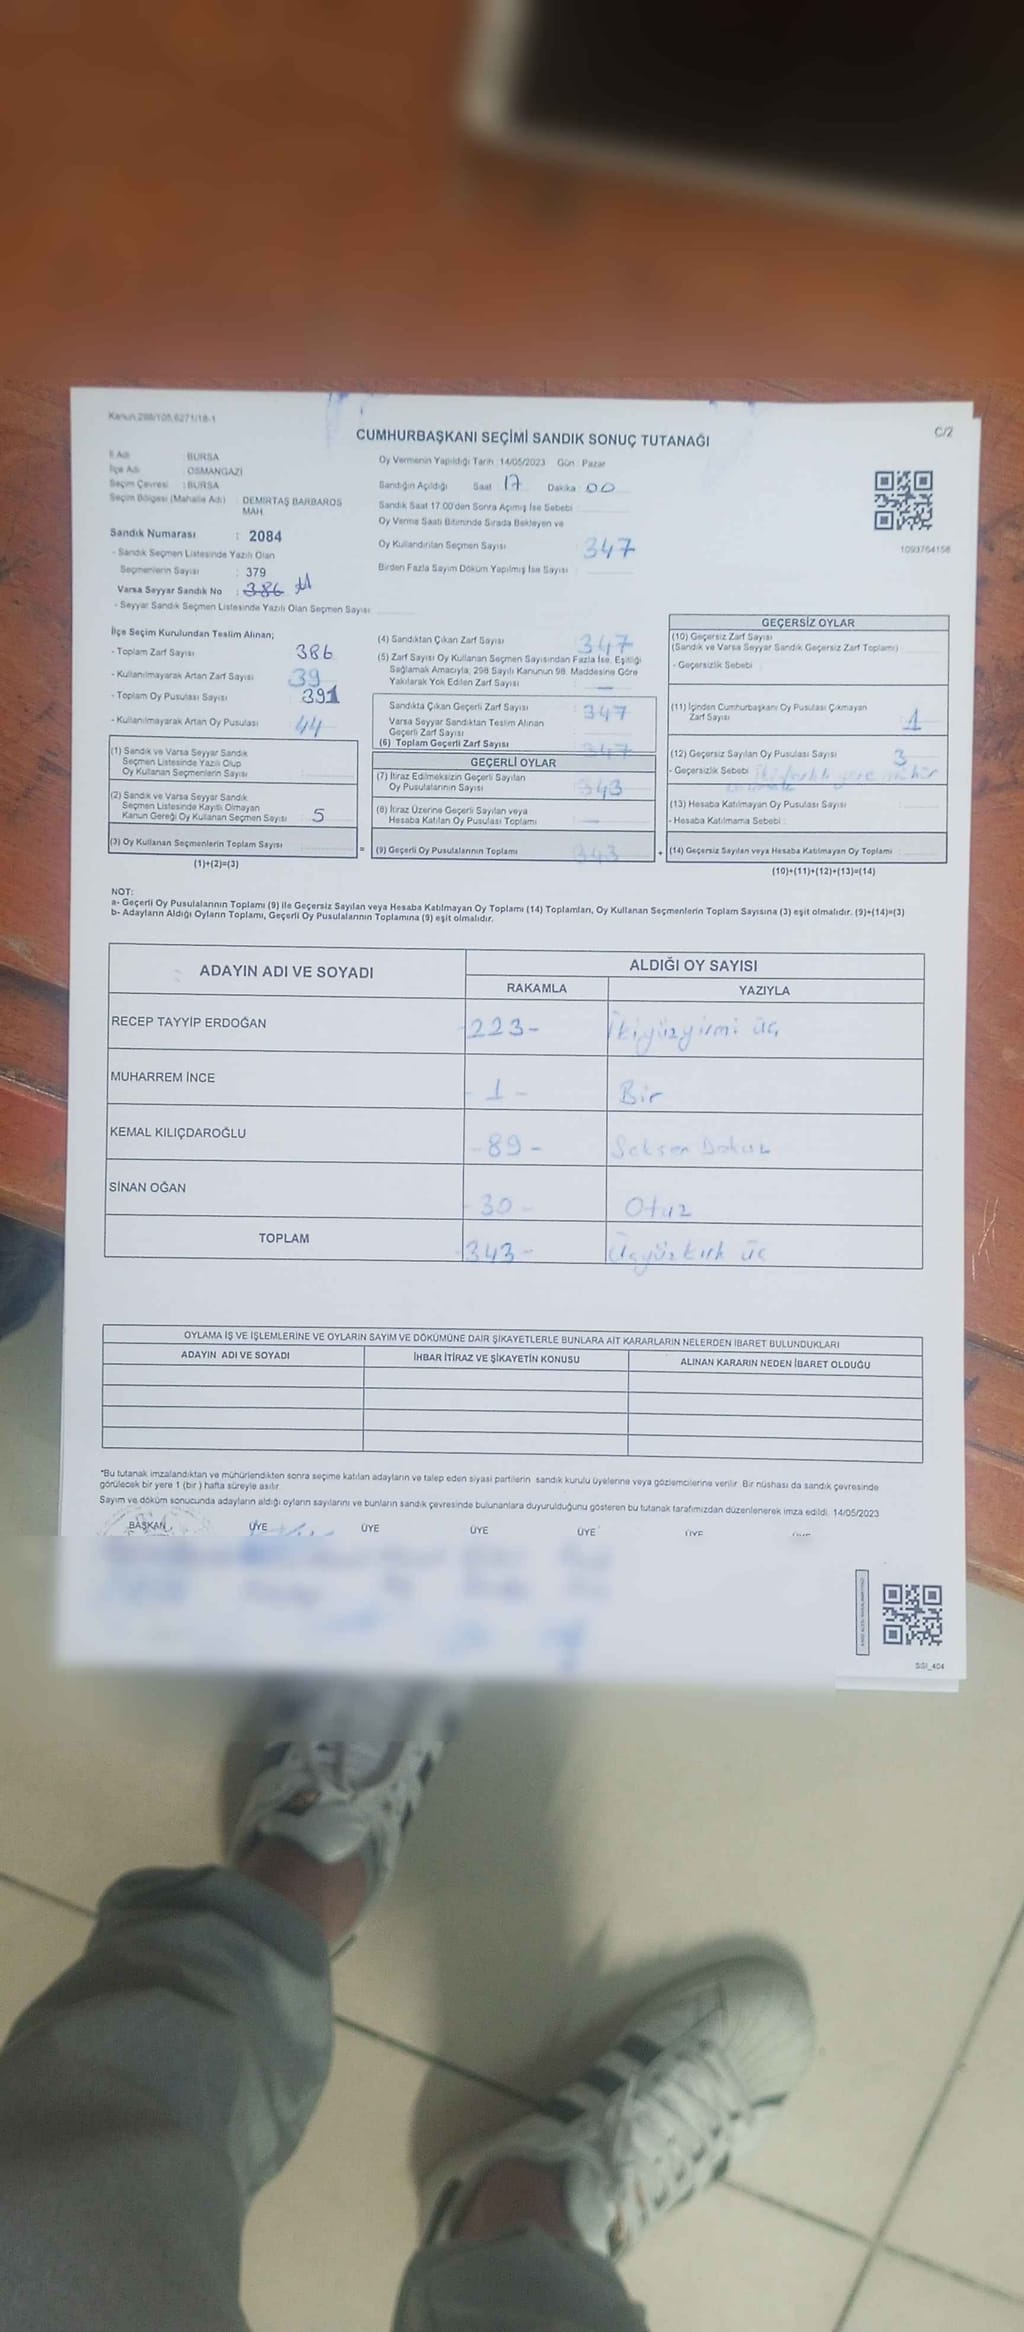 Kanun:298/105,6271/18-1
C/2
CUMHURBAŞKANI SEÇİMİ SANDIK SONUÇ TUTANAĞI
İl Adı : BURSA
İlçe Adı : OSMANGAZİ
Seçim Çevresi : BURSA
Seçim Bölgesi (Mahalle Adı) : DEMİRTAŞ BARBAROS MAH.
Sandık Numarası : 2084
- Sandık Seçmen Listesinde Yazılı Olan
Seçmenlerin Sayısı : 379
Varsa Seyyar Sandık No : 386
- Seyyar Sandık Seçmen Listesinde Yazılı Olan Seçmen Sayısı:
Oy Vermenin Yapıldığı Tarih :14/05/2023 Gün : Pazar
Sandığın Açıldığı Saat 17 Dakika 00
Sandık Saat 17:00'den Sonra Açımış İse Sebebi :
Oy Verme Saati Bitiminde Sırada Bekleyen ve
Oy Kullandırılan Seçmen Sayısı : 347
Birden Fazla Sayım Döküm Yapılmış İse Sayısı :
1093764156
İlçe Seçim Kurulundan Teslim Alınan;
- Toplam Zarf Sayısı : 386
- Kullanılmayarak Artan Zarf Sayısı : 39
- Toplam Oy Pusulası Sayısı : 391
- Kullanılmayarak Artan Oy Pusulası : 44
(1) Sandık ve Varsa Seyyar Sandık
Seçmen Listesinde Yazılı Olup
Oy Kullanan Seçmenlerin Sayısı :
(2) Sandık ve Varsa Seyyar Sandık
Seçmen Listesinde Kayıtlı Olmayan
Kanun Gereği Oy Kullanan Seçmen Sayısı : 5
(3) Oy Kullanan Seçmenlerin Toplam Sayısı :
(1)+(2)=(3)
(4) Sandıktan Çıkan Zarf Sayısı : 347
(5) Zarf Sayısı Oy Kullanan Seçmen Sayısından Fazla İse, Eşitliği
Sağlamak Amacıyla, 298 Sayılı Kanunun 98. Maddesine Göre
Yakılarak Yok Edilen Zarf Sayısı : —
Sandıkta Çıkan Geçerli Zarf Sayısı : 347
Varsa Seyyar Sandıktan Teslim Alınan
Geçerli Zarf Sayısı :
(6) Toplam Geçerli Zarf Sayısı : 347
GEÇERLİ OYLAR
(7) İtiraz Edilmeksizin Geçerli Sayılan
Oy Pusulalarının Sayısı : 343
(8) İtiraz Üzerine Geçerli Sayılan veya
Hesaba Katılan Oy Pusulası Toplamı : —
= (9) Geçerli Oy Pusulalarının Toplamı : 343
GEÇERSİZ OYLAR
(10) Geçersiz Zarf Sayısı
(Sandık ve Varsa Seyyar Sandık Geçersiz Zarf Toplamı) :
- Geçersizlik Sebebi :
(11) İçinden Cumhurbaşkanı Oy Pusulası Çıkmayan
Zarf Sayısı : 1
(12) Geçersiz Sayılan Oy Pusulası Sayısı : 3
- Geçersizlik Sebebi : İki farklı yere mühür
(13) Hesaba Katılmayan Oy Pusulası Sayısı :
- Hesaba Katılmama Sebebi :
+ (14) Geçersiz Sayılan veya Hesaba Katılmayan Oy Toplamı :
(10)+(11)+(12)+(13)=(14)
NOT:
a- Geçerli Oy Pusulalarının Toplamı (9) ile Geçersiz Sayılan veya Hesaba Katılmayan Oy Toplamı (14) Toplamları, Oy Kullanan Seçmenlerin Toplam Sayısına (3) eşit olmalıdır. (9)+(14)=(3)
b- Adayların Aldığı Oyların Toplamı, Geçerli Oy Pusulalarının Toplamına (9) eşit olmalıdır.
ADAYIN ADI VE SOYADI ALDIĞI OY SAYISI
RAKAMLA YAZIYLA
RECEP TAYYİP ERDOĞAN -223- İkiyüzyirmi üç
MUHARREM İNCE - 1 - Bir
KEMAL KILIÇDAROĞLU -89- Seksen Dokuz
SİNAN OĞAN -30- Otuz
TOPLAM -343- Üçyüzkırk üç
OYLAMA İŞ VE İŞLEMLERİNE VE OYLARIN SAYIM VE DÖKÜMÜNE DAİR ŞİKAYETLERLE BUNLARA AİT KARARLARIN NELERDEN İBARET BULUNDUKLARI
ADAYIN ADI VE SOYADI İHBAR İTİRAZ VE ŞİKAYETİN KONUSU ALINAN KARARIN NEDEN İBARET OLDUĞU
*Bu tutanak imzalandıktan ve mühürlendikten sonra seçime katılan adayların ve talep eden siyasi partilerin sandık kurulu üyelerine veya gözlemcilerine verilir. Bir nüshası da sandık çevresinde
görülecek bir yere 1 (bir ) hafta süreyle asılır.
Sayım ve döküm sonucunda adayların aldığı oyların sayılarını ve bunların sandık çevresinde bulunanlara duyurulduğunu gösteren bu tutanak tarafımızdan düzenlenerek imza edildi. 14/05/2023
BAŞKAN ÜYE ÜYE ÜYE ÜYE ÜYE ÜYE
SSI_404